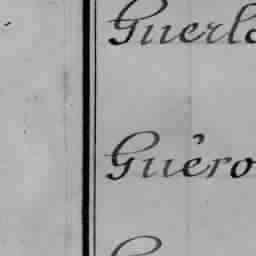 Guerla
Guéro